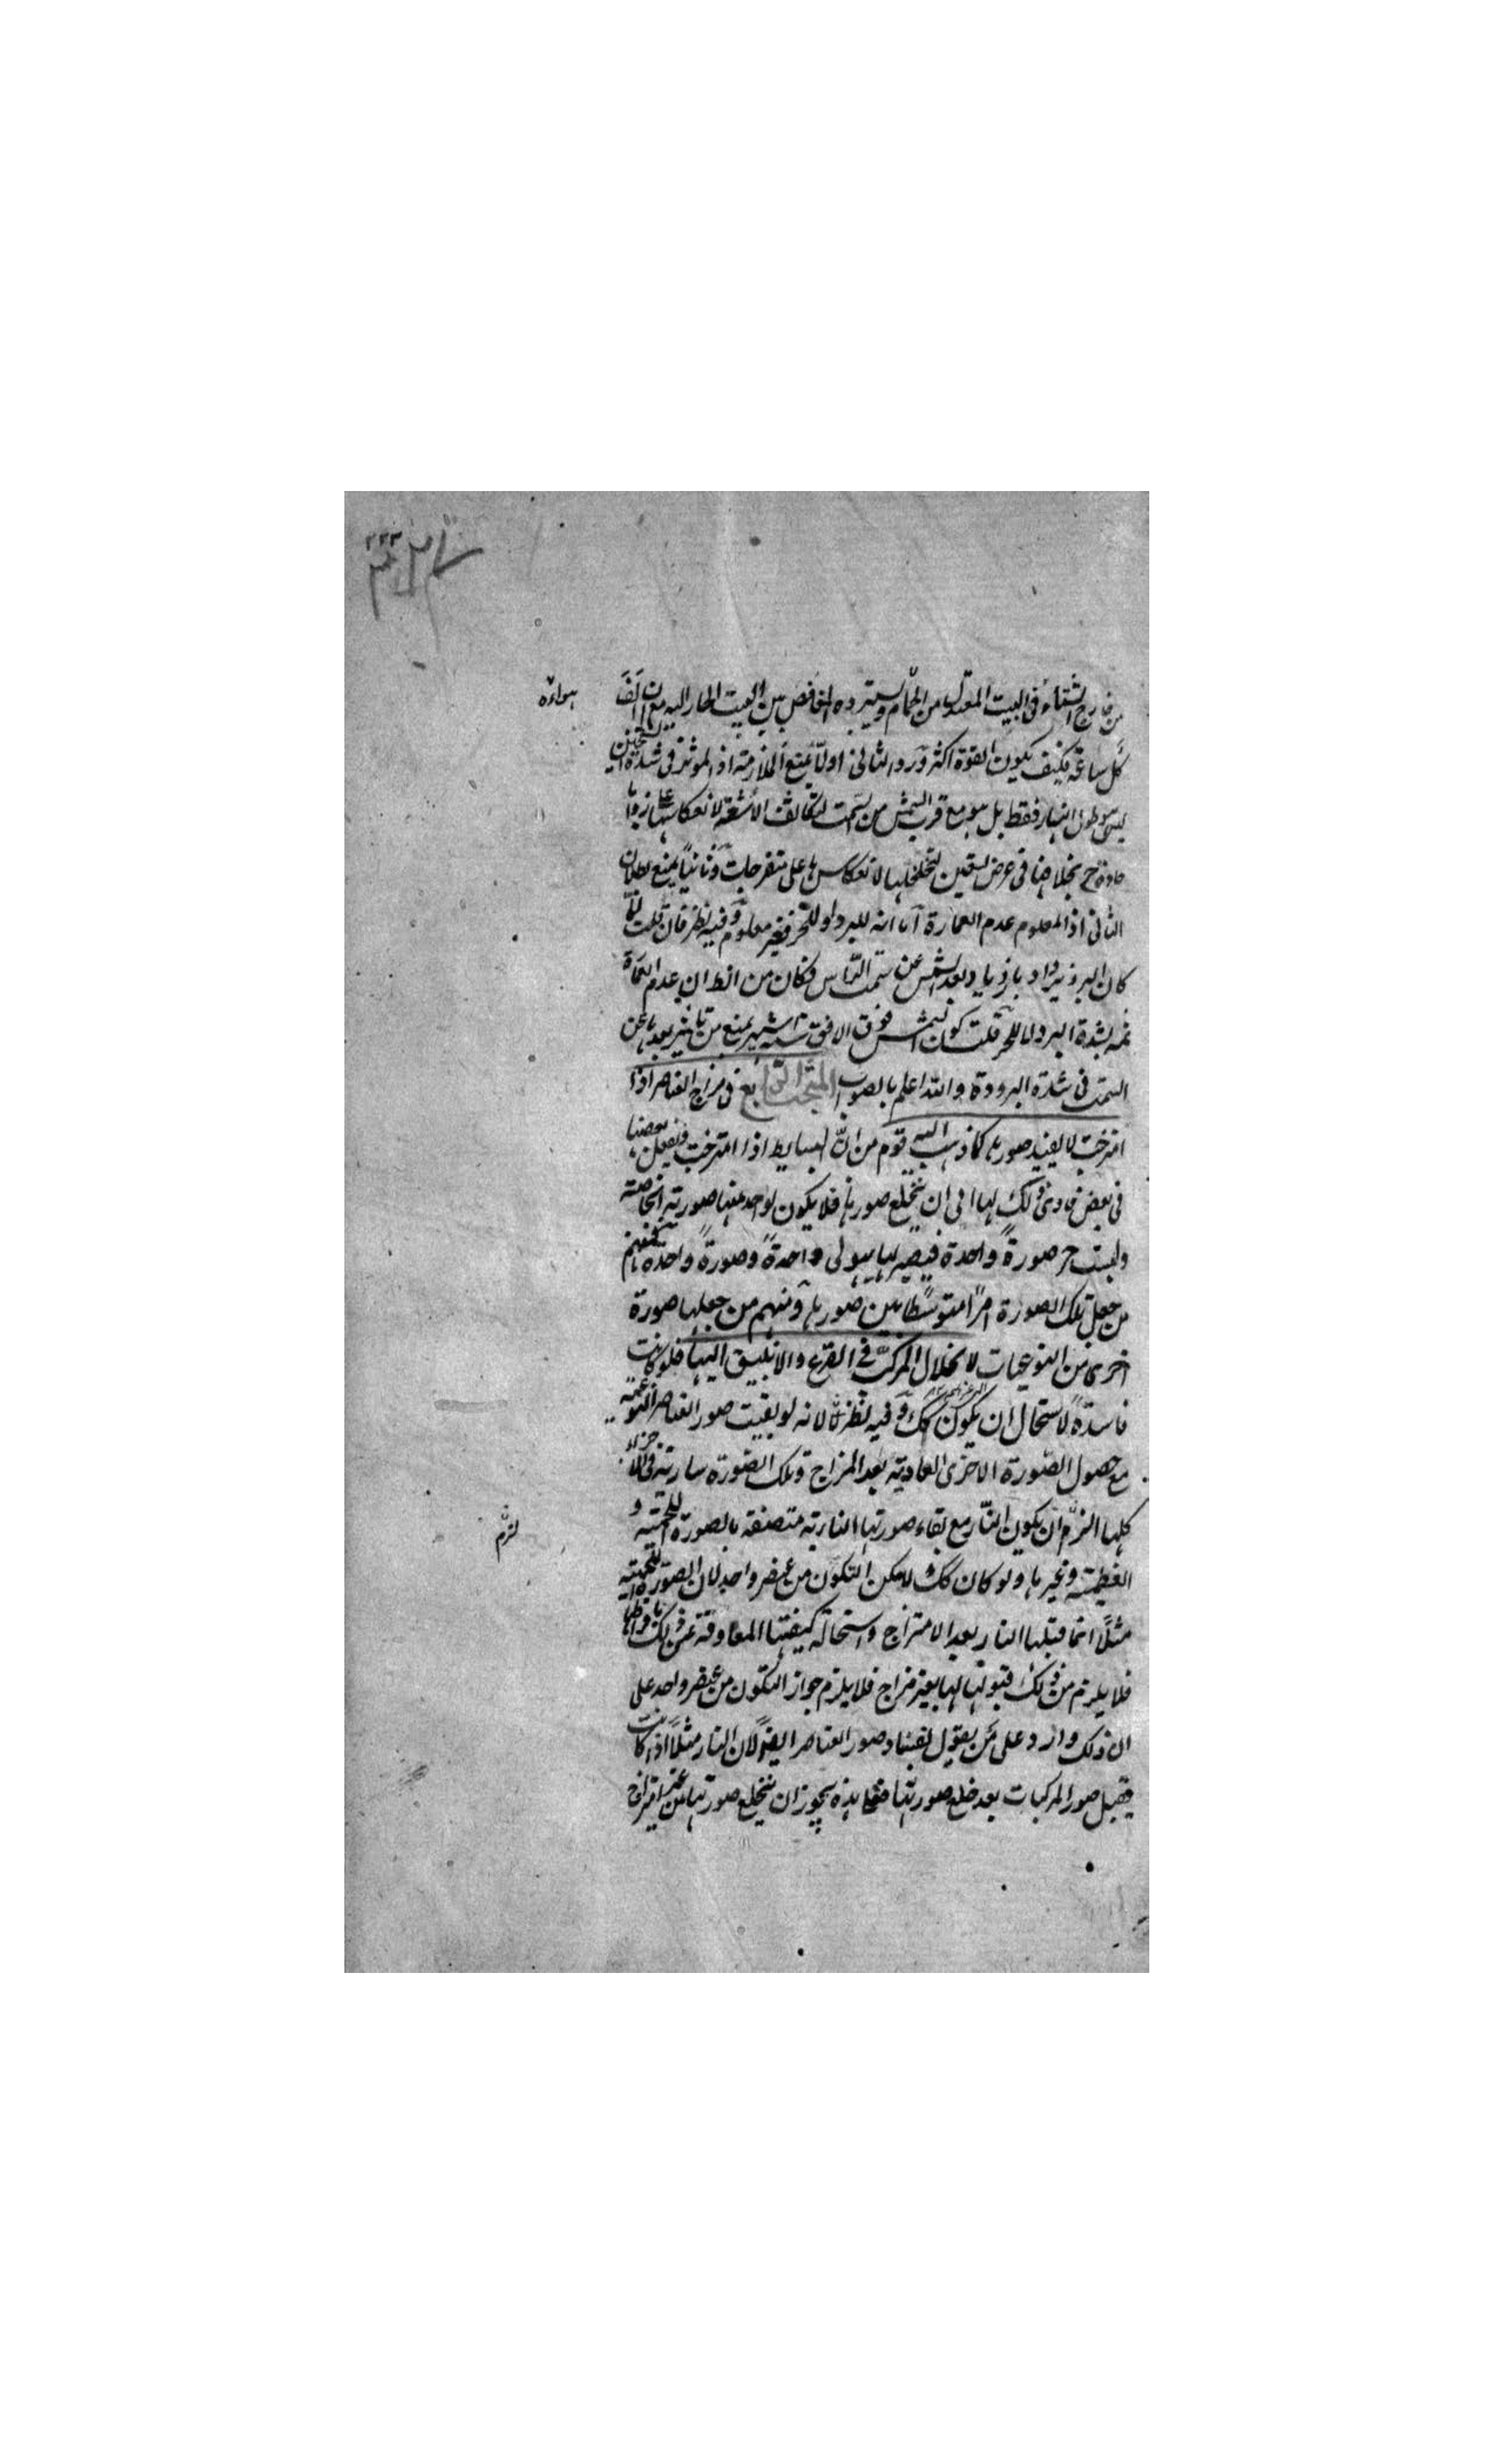 ٢٢٣
من خارج الشتاء فى البيت المعتدل من الحمّام ويستبرده الغافص من البيت الحار اليه مع ان الف
هواءه
كل ساعة فكيف يكون القوة اكثر وَرد الثانى اولًا بمنع الملازمة اذ الموثر فى شدة التسخين
ليس هو طول النهار فقط بل هو مع قرب الشمس من السمت لتكاثف الاشعة لانعكاسها على زوايا
حادة ح بخلافها فى عرض تسعين لتخلخلها لانعكاسها على منفرجات وثانيًا بمنع بطلان
الثانى اذ المعلوم عدم العمارة اما انه للبرد او للحر فغير معلوم وفيه نظر فان قلت لمّا
كان البرد يزداد بازدياد بعد الشمس عن سمت الراس فكان من الظ ان عدم العمارة
ثمه لشدة البرد لا للحر قلت كون الشمس فوق الافق ستة اشهر يمنع من تاثير بعدها عن
السمت فى شدة البرودة والله اعلم بالصواب المبحث الرّابع فى مزاج العناصر اذا
امتزجت لا يفسد صورها كما ذهب اليه قوم من انّ البسايط اذا امتزجت وانفعل بعضها
فى بعض تادى ذلك بها الى ان ينخلع صورها فلا يكون لواحد منها صورته الخاصّة
ولبست ح صورةً واحدة فيصير لها هيولى واحدةً وصورةً واحدة فمنهم
من جعل تلك الصورة امرًا متوسّطا بين صورها ومنهم من جعلها صورة
اخرى من النوعيات لانحلال المركّب فى القرع والانبيق اليها فلو كانت
فاسدةً لاستحال ان يكون كك وَفيه نظر لانه لو بقيت صور العناصر النوعيّة
مع حصول الصّورة الاخرى العادية بعد المزاج وتلك الصّورة سارية فى الاجزاء
كلها لزم ان يكون النّار مع بقاء صورتها النارية متصفة بالصورة اللحميّة و
لزم
العظمية وغيرها ولو كان كك لامكن التكوّن من عنصر واحد لان الصّورة اللحميّة
مثلًا انما قبلها النار بعد الامتزاج واستحالة كيفيّتها المعاوقة عن ذلك
فلا يلزم من ذلك قبولها لها بغير مزاج فلا يلزم جواز التكون من عنصر واحد على
ان ذلك وارد على مَن يقول بفساد صور العناصر ايضًا لان النار مثلًا اذا كانت
يقبل صور المركبات بعد خلع صورتها يجوز ان ينخلع صورتها من غير امتزاج